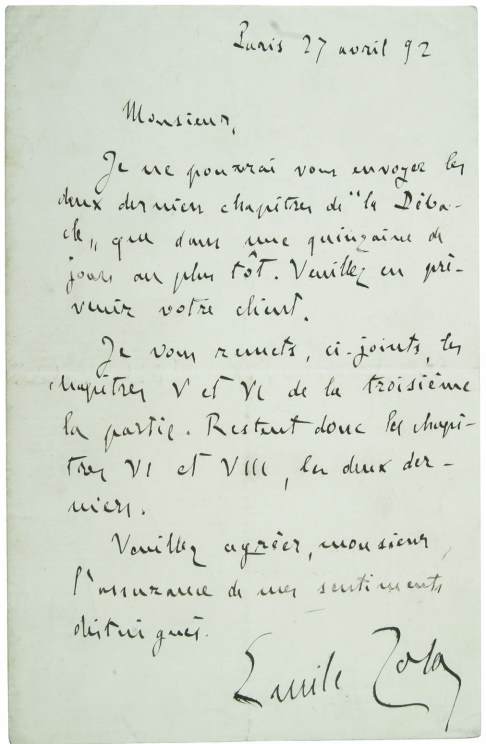 Paris 27 avril 92
Monsieur,
Je ne pourrai vous envoyer les
deux derniers chapitres de "la Débâ-
cle„ que dans une quinzaine de
jours au plus tôt. Veuillez en pré-
venir votre client.
Je vous remets, ci-joints, les
chapitres V et VI de la troisième
la partie. Restent donc les chapi-
tres VI et VIII, les deux der-
niers.
Veuillez agréer, monsieur,
l'assurance de mes sentiments
distingués.
Emile Zola